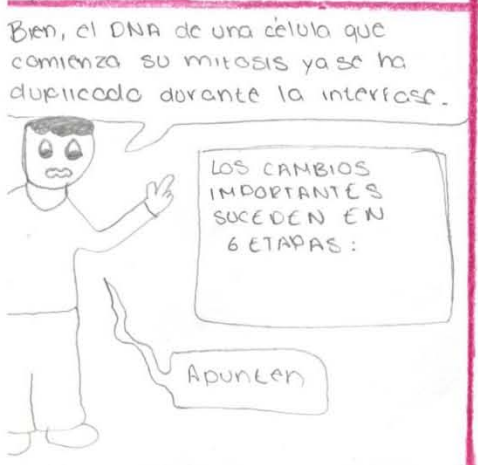 Bien, el DNA de una célula que
comienza su mitosis ya se ha
duplicado durante la interfase.
LOS CAMBIOS
IMPORTANTES
SUCEDEN EN
6 ETAPAS:
Apunten